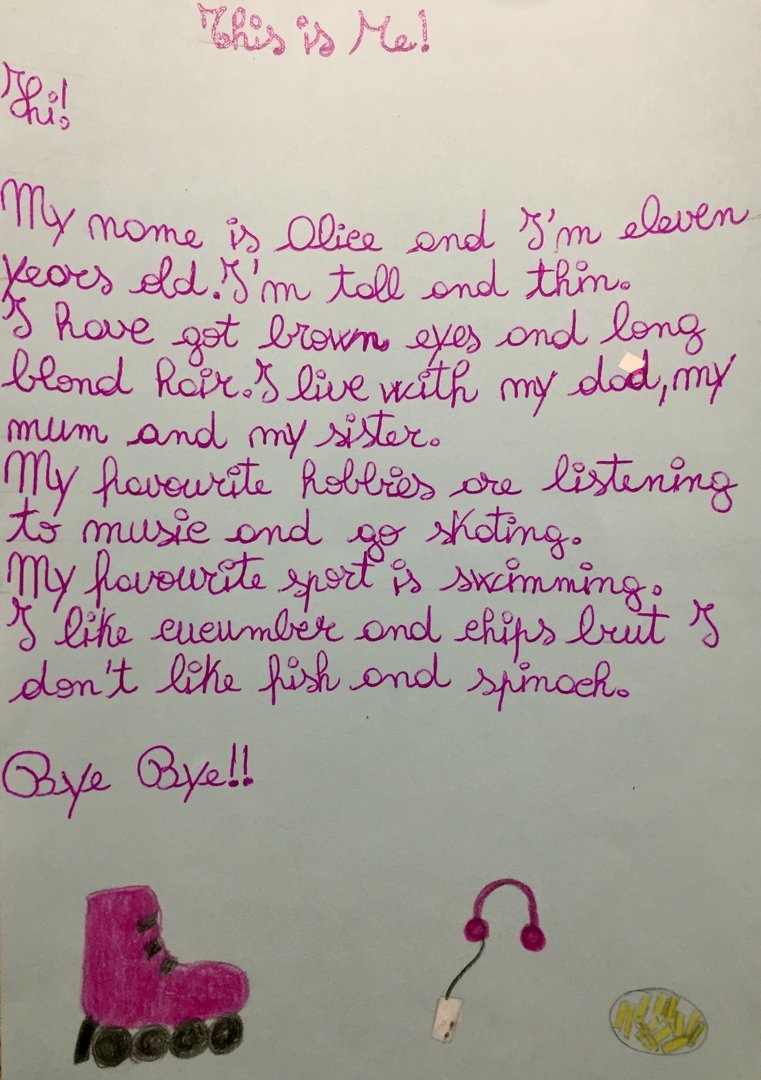 This is Me!
Hi!
My name is Alice and I'm eleven
years old. I'm tall and thin.
I have got brown eyes and long
blond hair. I live with my dad, my
mum and my sister.
My favourite hobbies are listening
to music and go skating.
My favourite sport is swimming.
I like cucumber and chips but I
don't like fish and spinach.
Bye Bye!!